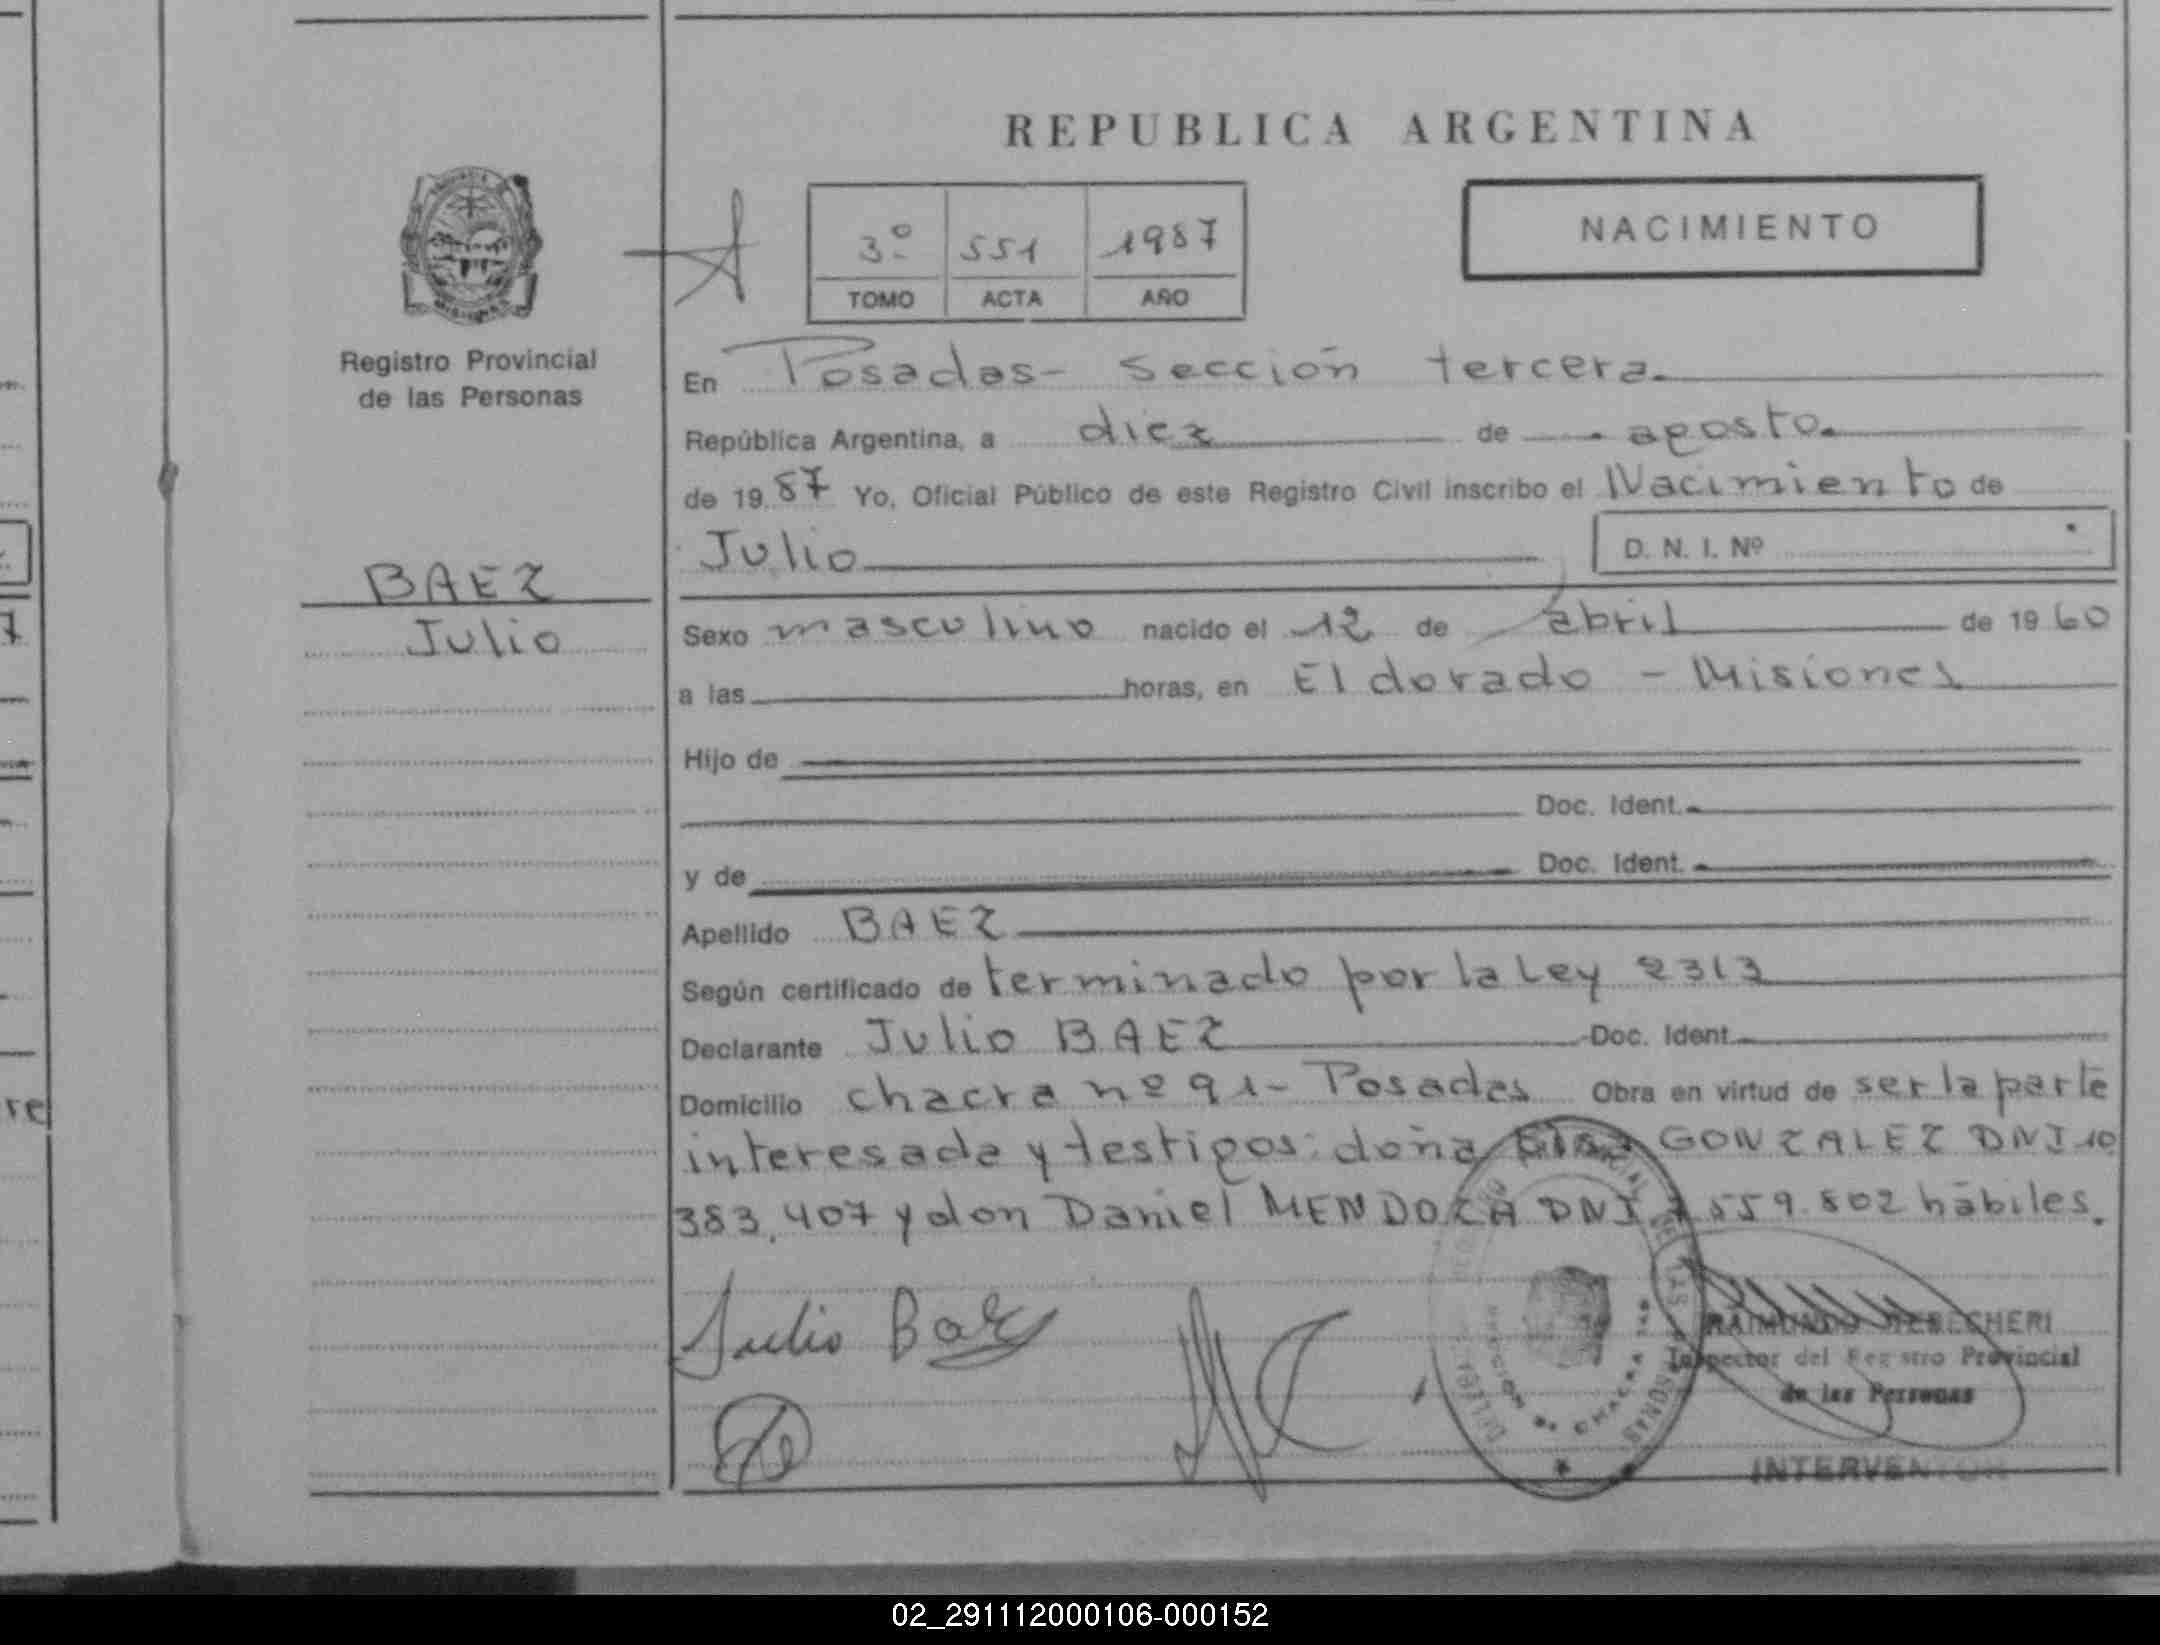 REPUBLICA ARGENTINA
NACIMIENTO
3º 551 1987
TOMO ACTA AÑO
Registro Provincial
de las Personas
BAEZ
Julio
En Posadas - Sección tercera.
República Argentina, a diez de agosto.
de 19 87 Yo, Oficial Público de este Registro Civil inscribo el Nacimiento de
Julio
D. N. I. Nº
Sexo masculino nacido el 12 de abril de 19 60
a las horas, en Eldorado - Misiones
Hijo de
Doc. Ident.
y de Doc. Ident.
Apellido BAEZ
Según certificado de terminado por la Ley 2313
Declarante Julio BAEZ Doc. Ident.
Domicilio chacra nº 91 - Posadas Obra en virtud de ser la parte
interesada y testigos: doña GONZALEZ DNI 10
383.407 y don Daniel MENDOZA DNI 559.802 hábiles.
Julio Baez
RAIMUNDO
Inspector del Registro Provincial
de las Personas
INTERVENTOR
02_291112000106-000152